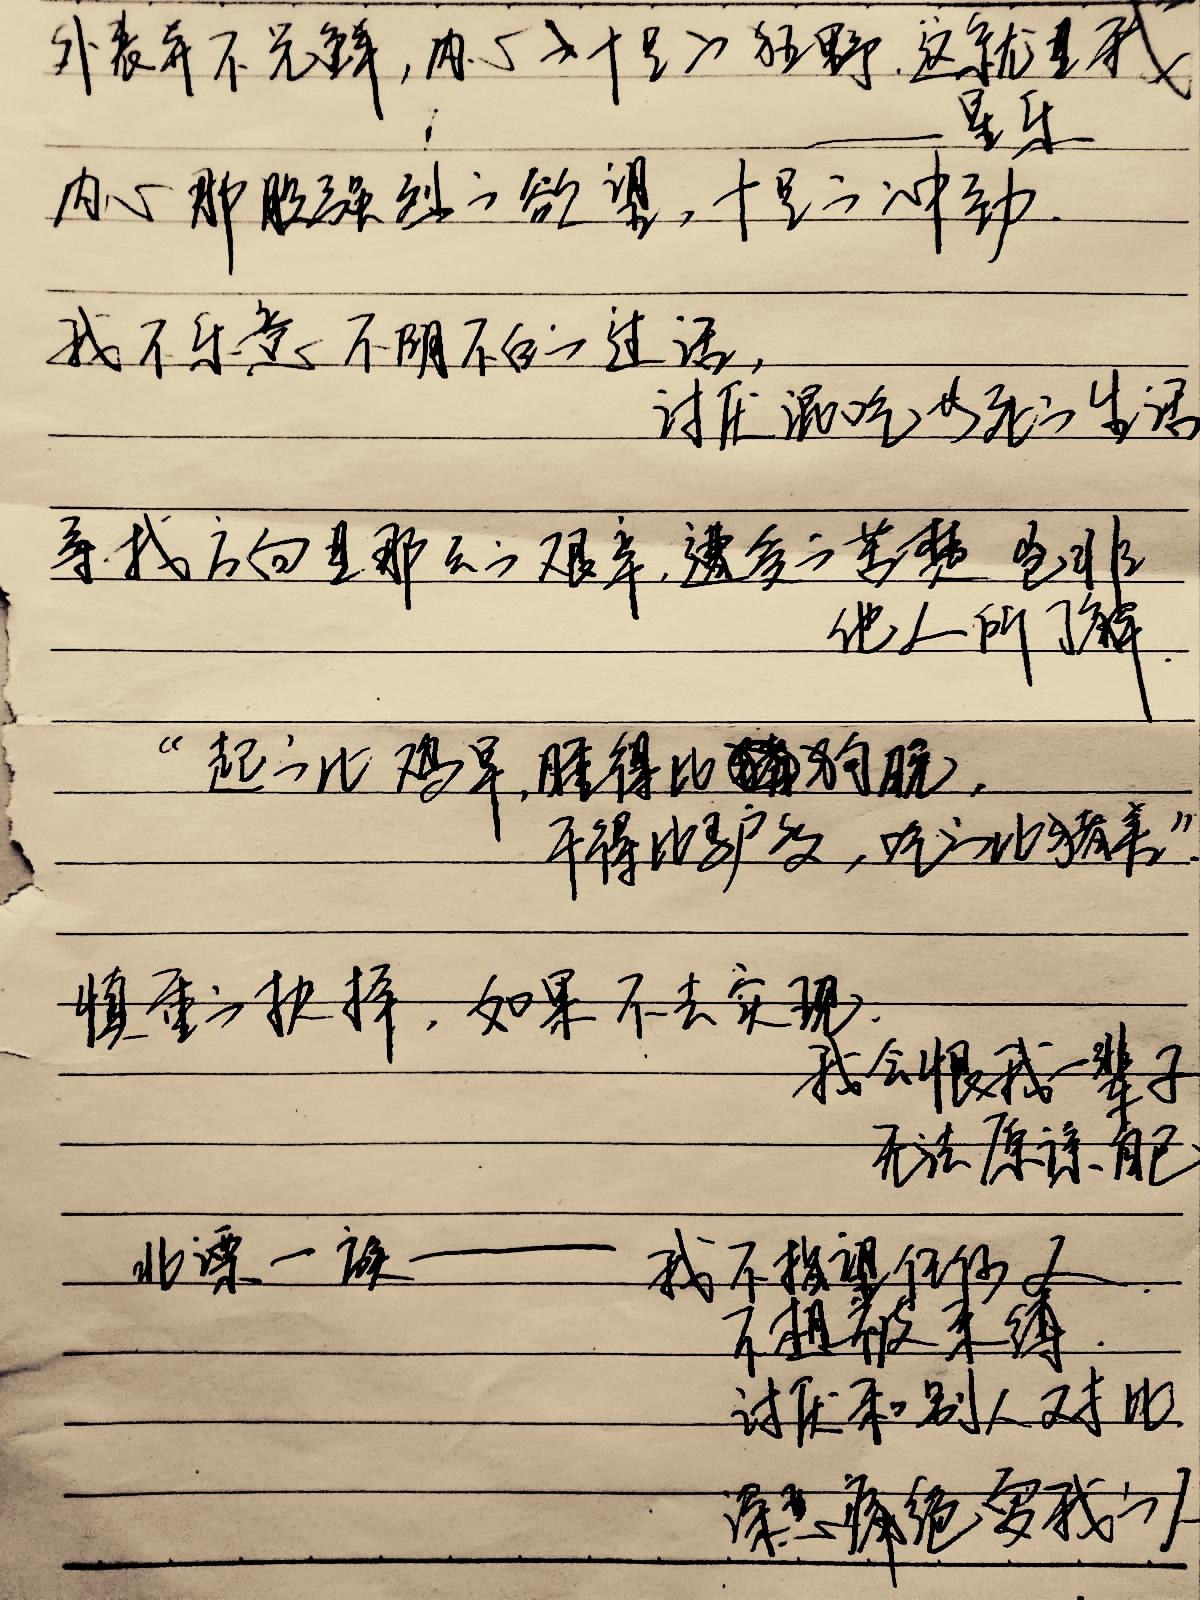 外表并不光鲜，内心却十足的狂野.这就是我
——星乐
内心那股强烈的欲望，十足的冲动.
我不乐意不明不白的生活，
讨厌混吃等死的生活
寻找方向是那么的艰辛，遭受的苦楚 岂非
他人所了解.
“起的比鸡早，睡得比狗晚，
干得比驴多，吃的比猪差”.
慎重的抉择，如果不去实现.
我会恨我一辈子
无法原谅自己
北漂一族—— 我不指望任何人.
不想被束缚.
讨厌和别人对比.
深恶痛绝 骂我的人